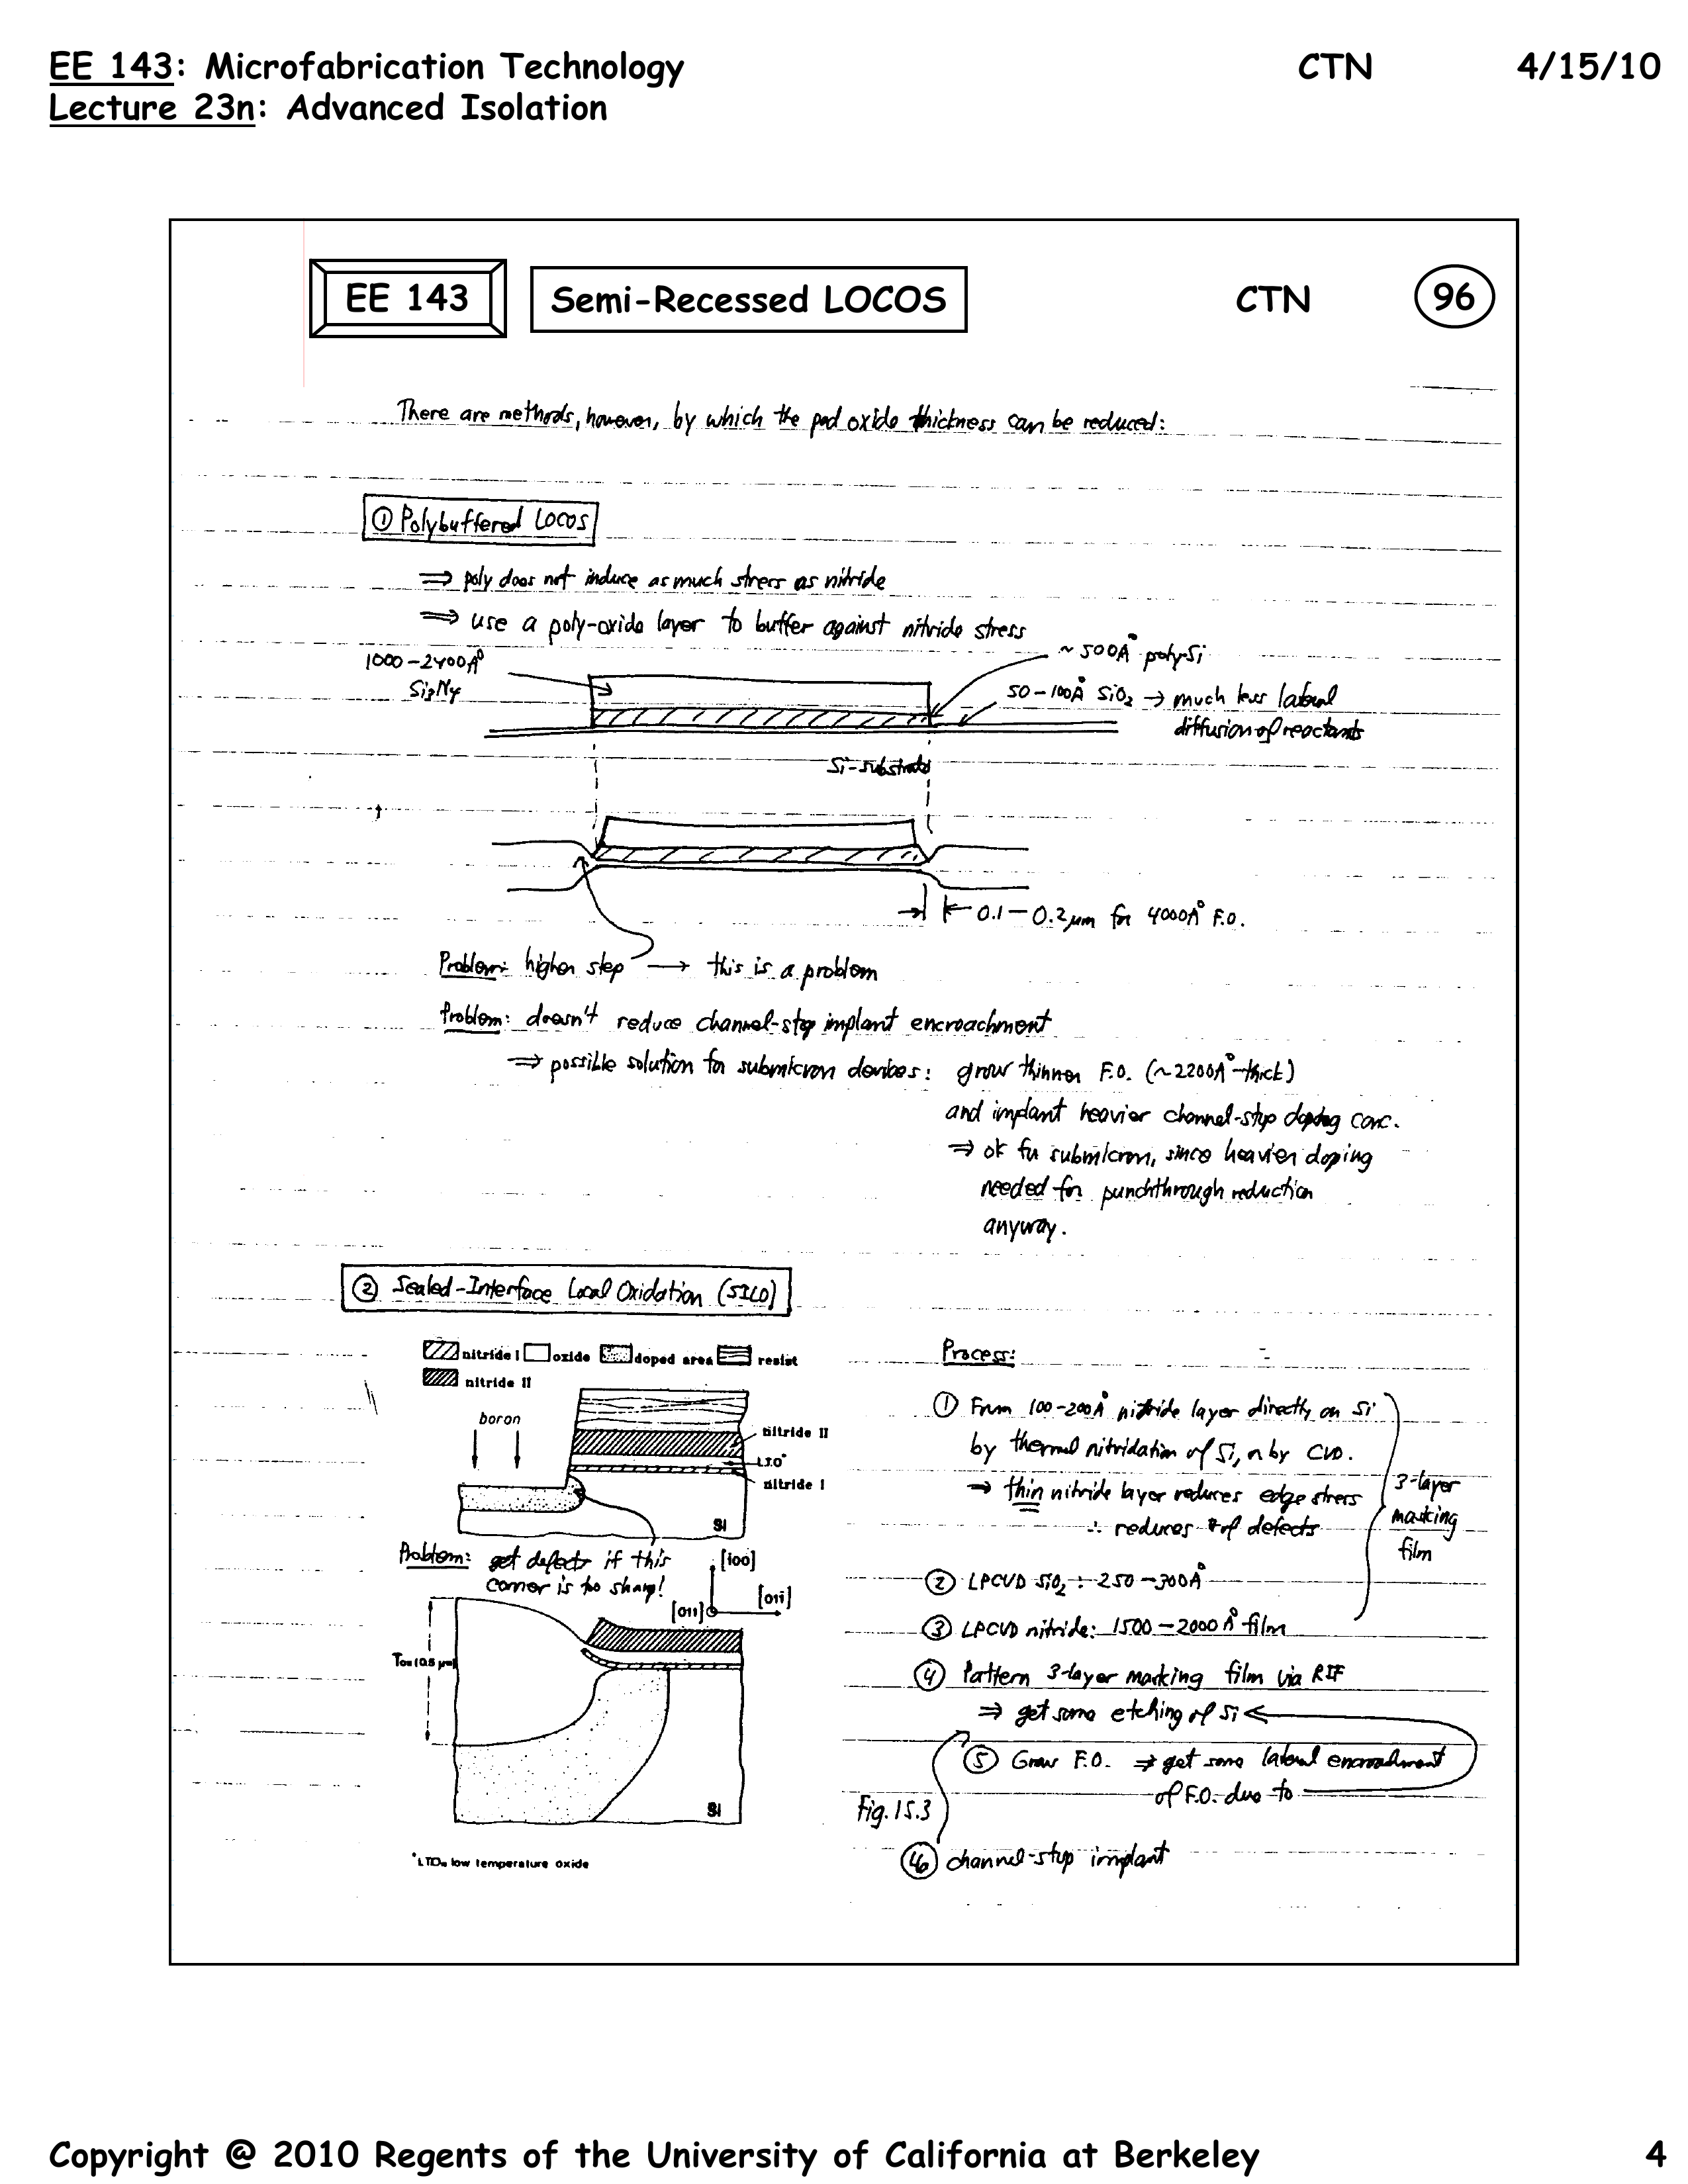 EE 143: Microfabrication Technology CTN 4/15/10
Lecture 23n: Advanced Isolation
EE 143 Semi-Recessed LOCOS CTN 96
There are methods, however, by which the pad oxide thickness can be reduced:
① Polybuffered LOCOS
⇒ poly does not induce as much stress as nitride
⇒ use a poly-oxide layer to buffer against nitride stress
1000-2400Å
Si3N4
~500Å poly-Si
50-100Å SiO2 → much less lateral
diffusion of reactants
Si-substrate
0.1-0.2μm for 4000Å F.O.
Problem: higher step → this is a problem
Problem: doesn't reduce channel-stop implant encroachment
⇒ possible solution for submicron devices: grow thinner F.O. (~2200Å-thick)
and implant heavier channel-stop doping conc.
⇒ ok for submicron, since heavier doping
needed for punchthrough reduction
anyway.
② Sealed-Interface Local Oxidation (SILO)
nitride I oxide doped area resist
nitride II
boron
nitride II
LTO*
nitride I
Si
Problem: get defects if this
corner is too sharp!
[100]
[011]
[011̄]
Tox (0.5 μm)
Si
*LTO= low temperature oxide
Process:
① Form 100-200Å nitride layer directly on Si
by thermal nitridation of Si, or by CVD.
→ thin nitride layer reduces edge stress
∴ reduces # of defects
② LPCVD SiO2: 250-300Å
③ LPCVD nitride: 1500-2000Å film
3-layer
masking
film
④ Pattern 3-layer masking film via RIE
⇒ get some etching of Si
⑤ Grow F.O. ⇒ get some lateral encroachment
of F.O. due to
Fig. 15.3
channel-stop implant
Copyright @ 2010 Regents of the University of California at Berkeley 4